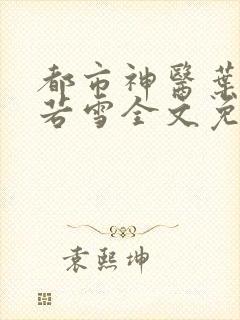 都市神醫葉
若雪全文免
袁熙坤